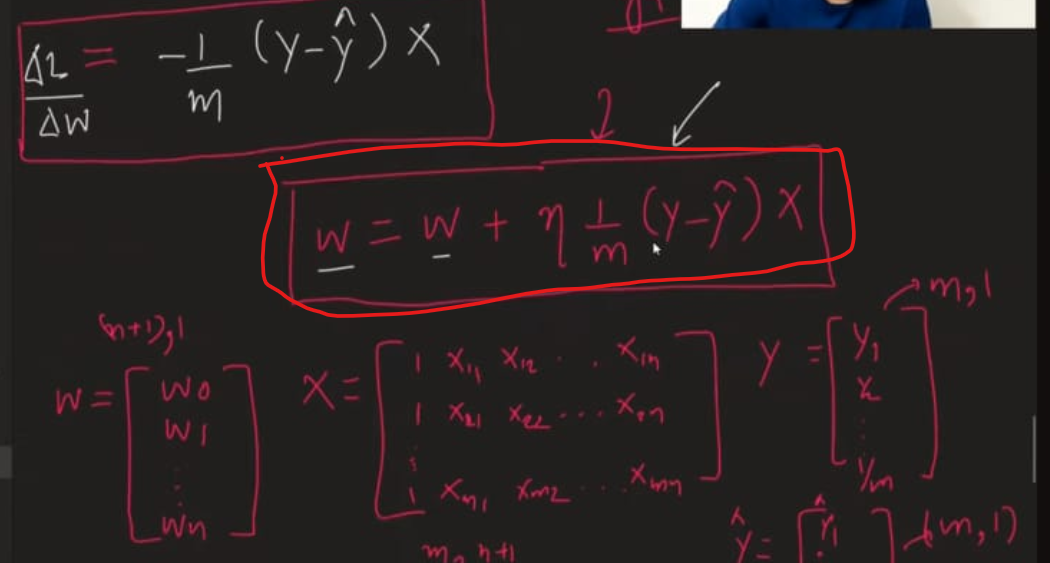 ΔL/ΔW = -1/m (y-ŷ) X
w = w + η 1/m (y-ŷ) X
m,1
(n+1),1
w = [W0 W1 ⋮ Wn]
X = [1 x11 x12 . . x1n
1 x21 x22 ... x2n
⋮
1 xm1 xm2 ... xmn]
m, n+1
y = [y1 ⋮ ym]
ŷ = [ŷ1 ] (m,1)